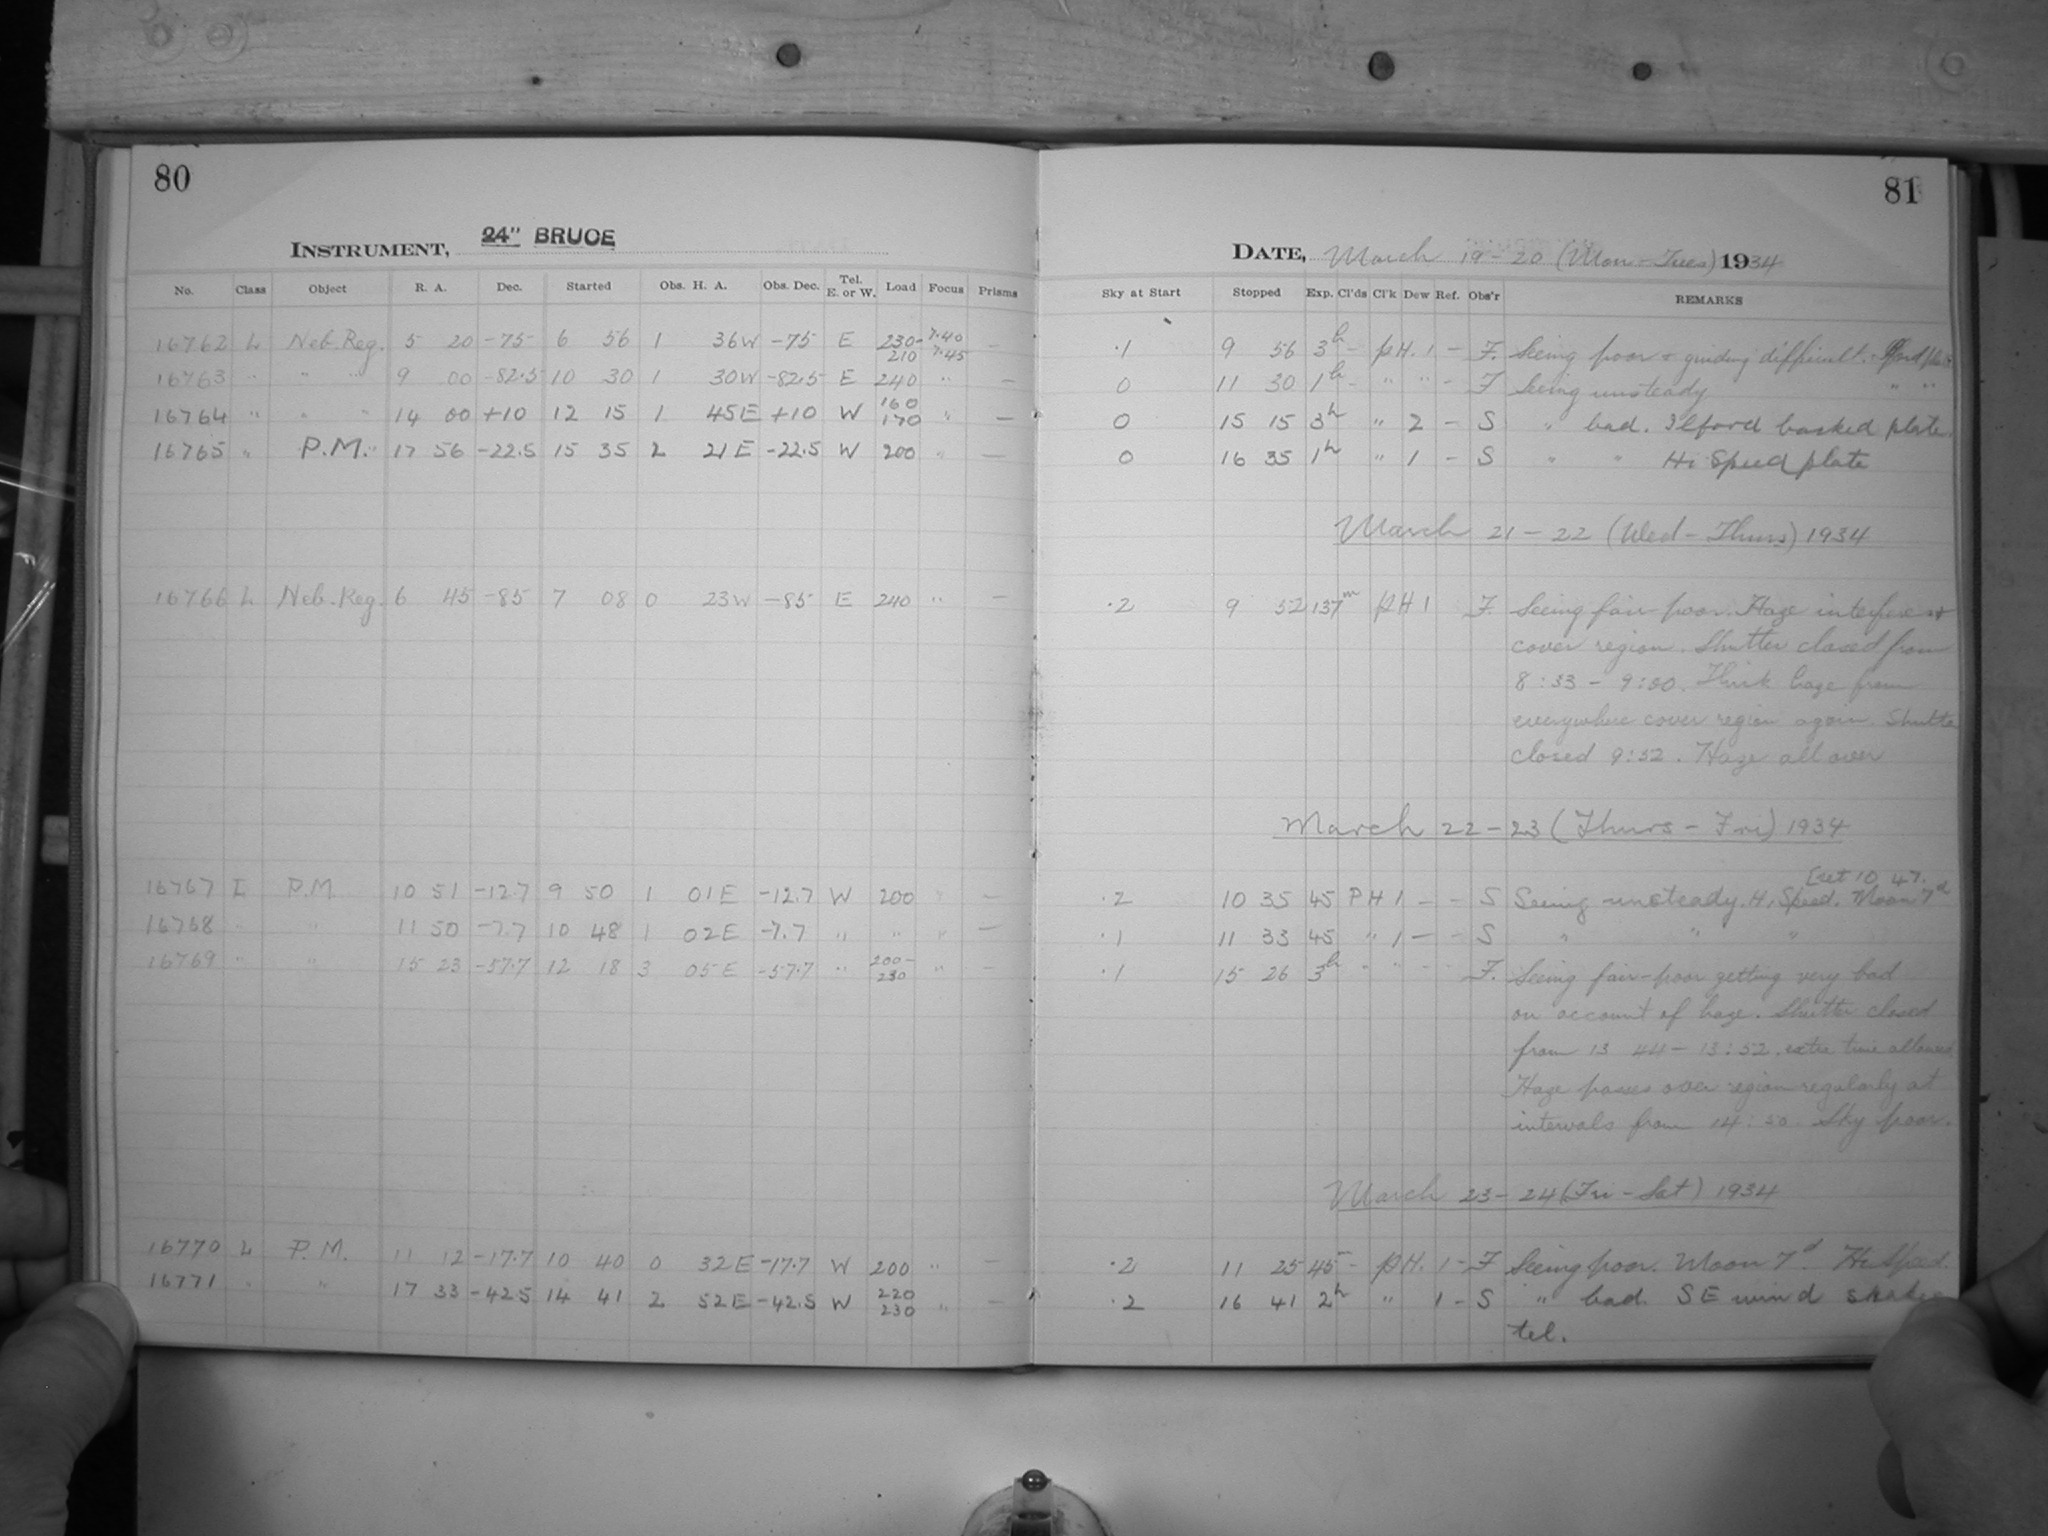 80
INSTRUMENT, 24" BRUCE
No. Class Object R. A. Dec. Started Obs. H. A. Obs. Dec. Tel. E. or W. Load Focus Prisms
16762 L Neb. Reg. 5 20 -75 6 56 1 36W -75 E 230-210 7.40 7.45 —
16763 " " " 9 00 -82.5 10 30 1 30W -82.5 E 240 " —
16764 " " " 14 00 +10 12 15 1 45E +10 W 160 170 " —
16765 " P.M. 17 56 -22.5 15 35 2 21E -22.5 W 200 " —
16766 L Neb. Reg. 6 45 -85 7 08 0 23W -85 E 240 " —
16767 L P.M. 10 51 -12.7 9 50 1 01E -12.7 W 200 " —
16768 " " 11 50 -7.7 10 48 1 02E -7.7 " " " —
16769 " " 15 23 -57.7 12 18 3 05E -57.7 " 200-230 " —
16770 L P.M. 11 12 -17.7 10 40 0 32E -17.7 W 200 " —
16771 " " 17 33 -42.5 14 41 2 52E -42.5 W 220 230 " —
81
DATE, March 19-20 (Mon-Tues) 1934
Sky at Start Stopped Exp. Cl'ds Cl'k Dew Ref. Obs'r REMARKS
.1 9 56 3h - pH. 1 - F. Seeing poor & guiding difficult. Ilford plate
0 11 30 1h - " " - F Seeing unsteady " "
0 15 15 3h " 2 - S " bad. Ilford backed plate.
0 16 35 1h " 1 - S " " Hi Speed plate
March 21-22 (Wed-Thurs) 1934
.2 9 52 137m pH 1 F. Seeing fair-poor. Haze interferes &
cover region. Shutter closed from
8:33 - 9:00. Thick haze from
everywhere cover region again. Shutter
closed 9:52. Haze all over
March 22-23 (Thurs-Fri) 1934
[set 10 47.
.2 10 35 45 PH 1 - - S Seeing unsteady. Hi Speed. Moon 7d
.1 11 33 45 " 1 - - S " " "
.1 15 26 3h " " F. Seeing fair-poor getting very bad
on account of haze. Shutter closed
from 13 44 - 13:52. extra time allowed
Haze passes over region regularly at
intervals from 14:50. Sky poor.
March 23-24 (Fri-Sat) 1934
.2 11 25 45m - pH. 1 - F Seeing poor. Moon 7d. Hi Speed.
.2 16 41 2h " 1 - S " bad. SE wind shakes
tel.